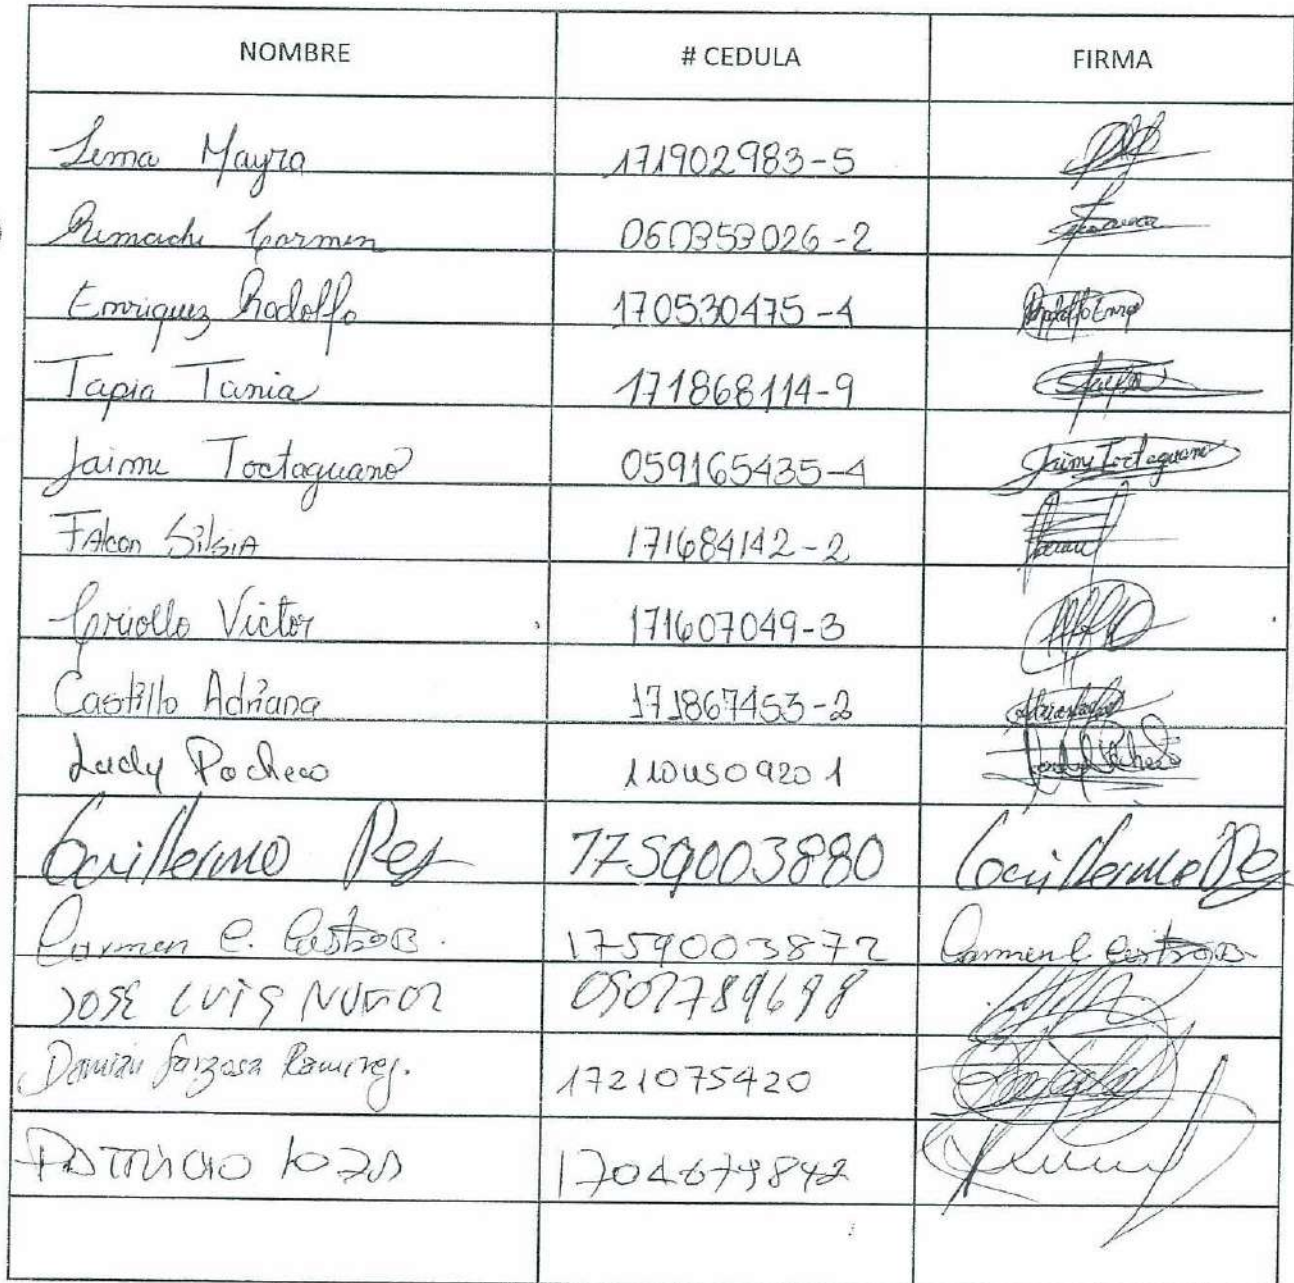 NOMBRE # CEDULA FIRMA
Lema Mayra 171902983-5
Remache Carmen 060353026-2
Enriquez Rodolfo 170530475-4 Rodolfo Enrq
Tapia Tania 171868114-9 Tapia
Jaime Toctaguano 059165435-4 Jaime Toctaguano
FAlcon SilsiA 171684142-2
Criollo Victor 171607049-3
Castillo Adriana 171867453-2
Lady Pacheco 1104509201 Lady Pacheco
Guillermo Rey 1759003880 Guillermo Rey
Carmen C. Castro B. 1759003872 Carmen C Castro B.
JOSE LUIS MUÑOZ
Damián Garzosa Ramirez. 1721075420
Patricio 1704679842